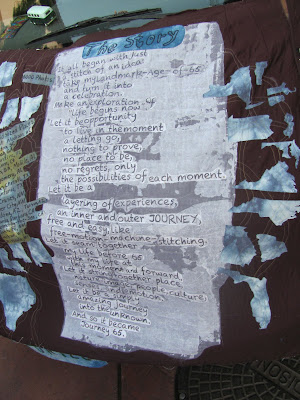 The Story
It all began with just
a stitch of an idea!
Take my landmark-Age-of-65
and turn it into
a celebration.
Make an exploration of
life begins now...
Let it be opportunity
to live in the moment
a letting go,
nothing to prove,
no place to be,
no regrets, only
the possibilities of each moment.
Let it be a
layering of experiences,
an inner and outer JOURNEY,
free and easy, like
free-motion-machine-stitching.
Let it
life before 65
with
and forward,
Let it place,
nature people culture.
Let it be
simply
amazing journey
into the unknown.
And so it became
Journey 65.